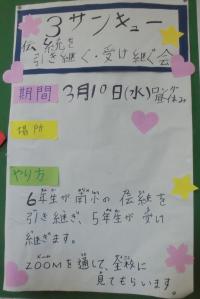 3サンキュー
伝統を
引き継ぐ・受け継ぐ会
期間 3月10日(水)ロング
昼休み
場所
やり方
6年生が南小の伝統を
引き継ぎ、5年生が受け
継ぎます。
ZOOMを通して、全校に
見てもらいます